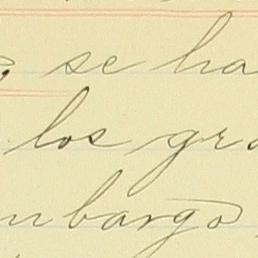 se ha
los gra
mbargo